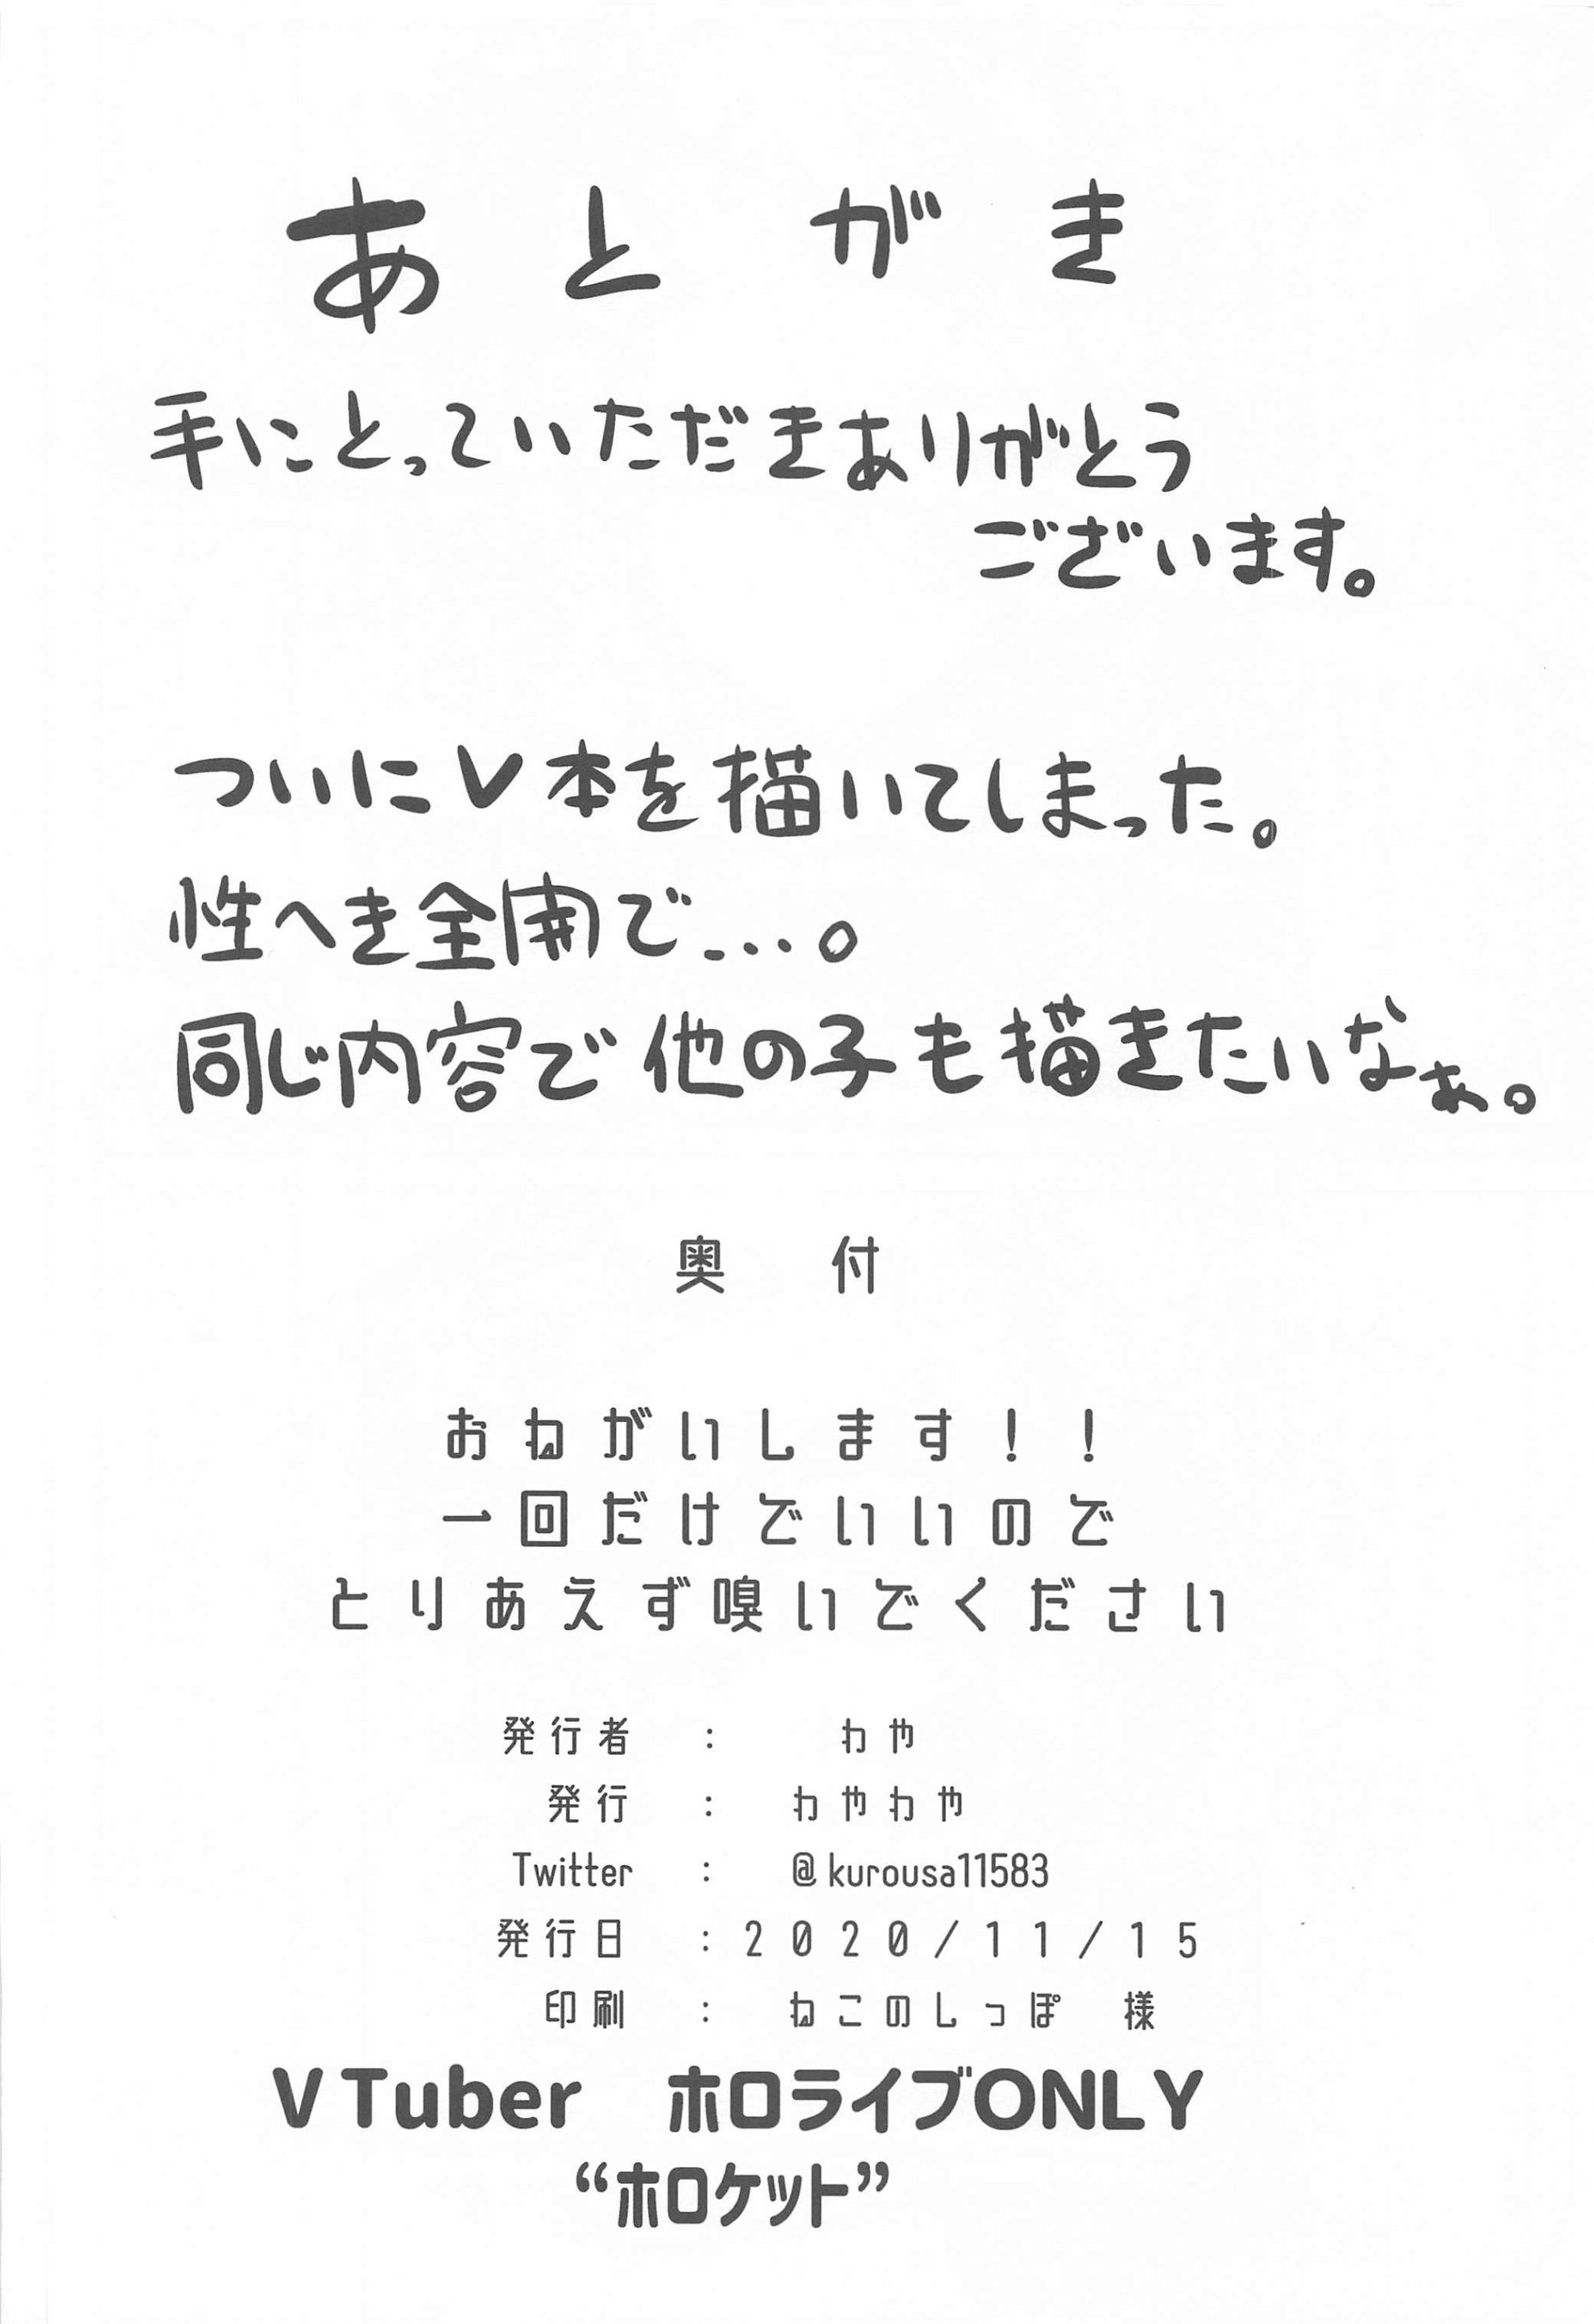 あとがき
手にとっていただきありがとう
ございます。
ついにV本を描いてしまった。
性へき全開で...。
同じ内容で他の子も描きたいなぁ。
奥付
おねがいします！！
一回だけでいいので
とりあえず嗅いでください
発行者 : わや
発行 : わやわや
Twitter : @kurousa11583
発行日 : 2020/11/15
印刷 : ねこのしっぽ 様
VTuber ホロライブONLY
“ホロケット”